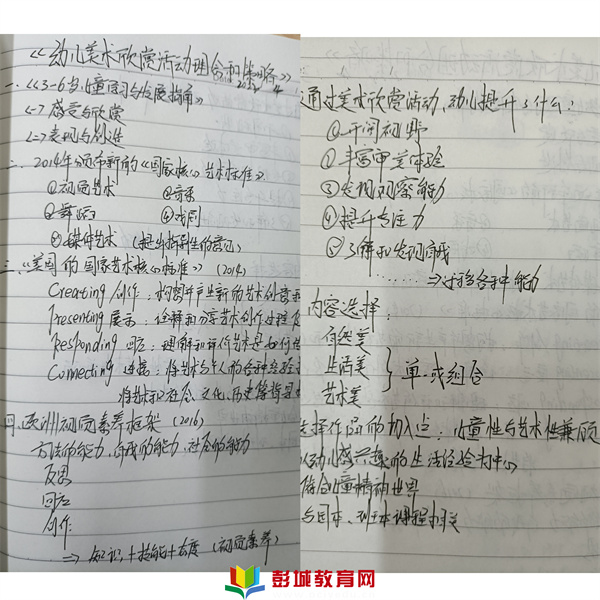 《幼儿美术欣赏活动组合和策略》
一、《3-6岁儿童学习与发展指南》
<一>感受与欣赏
<二>表现与创造
二、2014年颁布新的《国家核心艺术标准》
①视觉艺术 ②音乐
③舞蹈 ④戏剧
⑤媒体艺术
三、《美国的国家艺术核心标准》(2014)
Creating 创作：构思并产生新的艺术创意和
Presenting 展示：诠释和分享艺术创作过程
Responding 回应：理解和评价艺术是如何传
Connecting 连接：将艺术与个人的各种经验
将艺术和社会、文化、历史等背景
四、欧洲视觉素养框架(2016)
方法的能力、自我的能力、社会的能力
反思
回应
创作
⇒知识+技能+态度(视觉素养)
通过美术欣赏活动，幼儿提升了什么？
①开阔视野
②丰富审美体验
③发现观察能力
④提升专注力
⑤了解和发现自我
……⇒迁移各种能力
内容选择：
自然美
生活美
艺术美
单一或组合
选择作品的切入点：儿童性与艺术性兼顾
以幼儿感兴趣的生活经验为中心
儿童精神世界
与园本、班本课程相关
彭城教育网